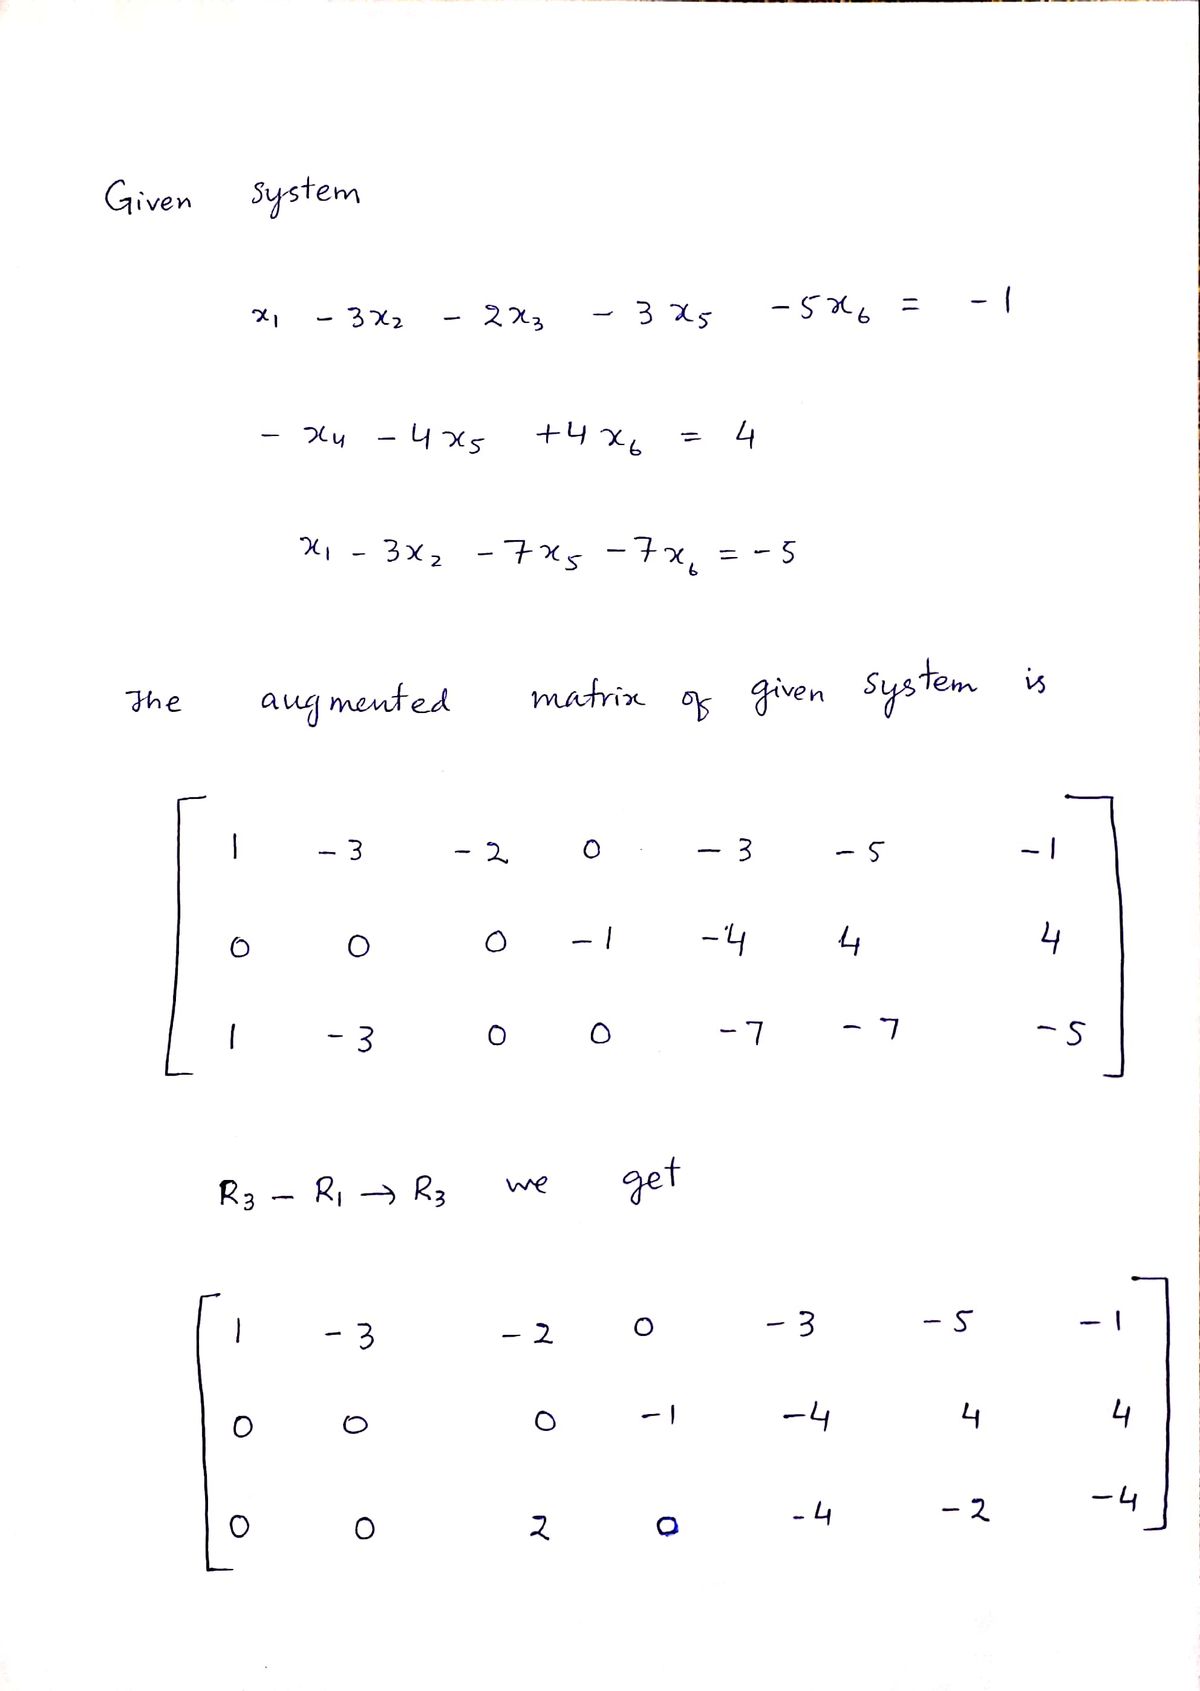 Given system
x₁ - 3x₂ - 2x₃ - 3x₅ - 5x₆ = -1
- x₄ - 4x₅ + 4x₆ = 4
x₁ - 3x₂ - 7x₅ - 7x₆ = -5
The augmented matrix of given system is
1 -3 -2 0 -3 -5 -1
0 0 0 -1 -4 4 4
1 -3 0 0 -7 -7 -5
R₃ - R₁ → R₃ we get
1 -3 -2 0 -3 -5 -1
0 0 0 -1 -4 4 4
0 0 2 0 -4 -2 -4